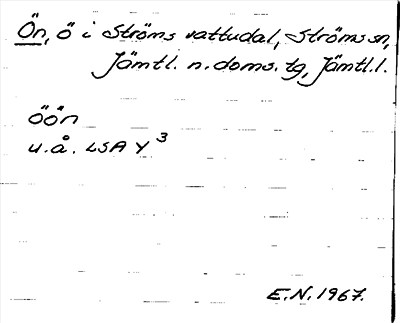 Ön, ö i Ströms vattudal, Ströms sn,
Jämtl. n. doms. tg, Jämtl.l.
öön
u.å. LSA Y 3
E.N. 1967.